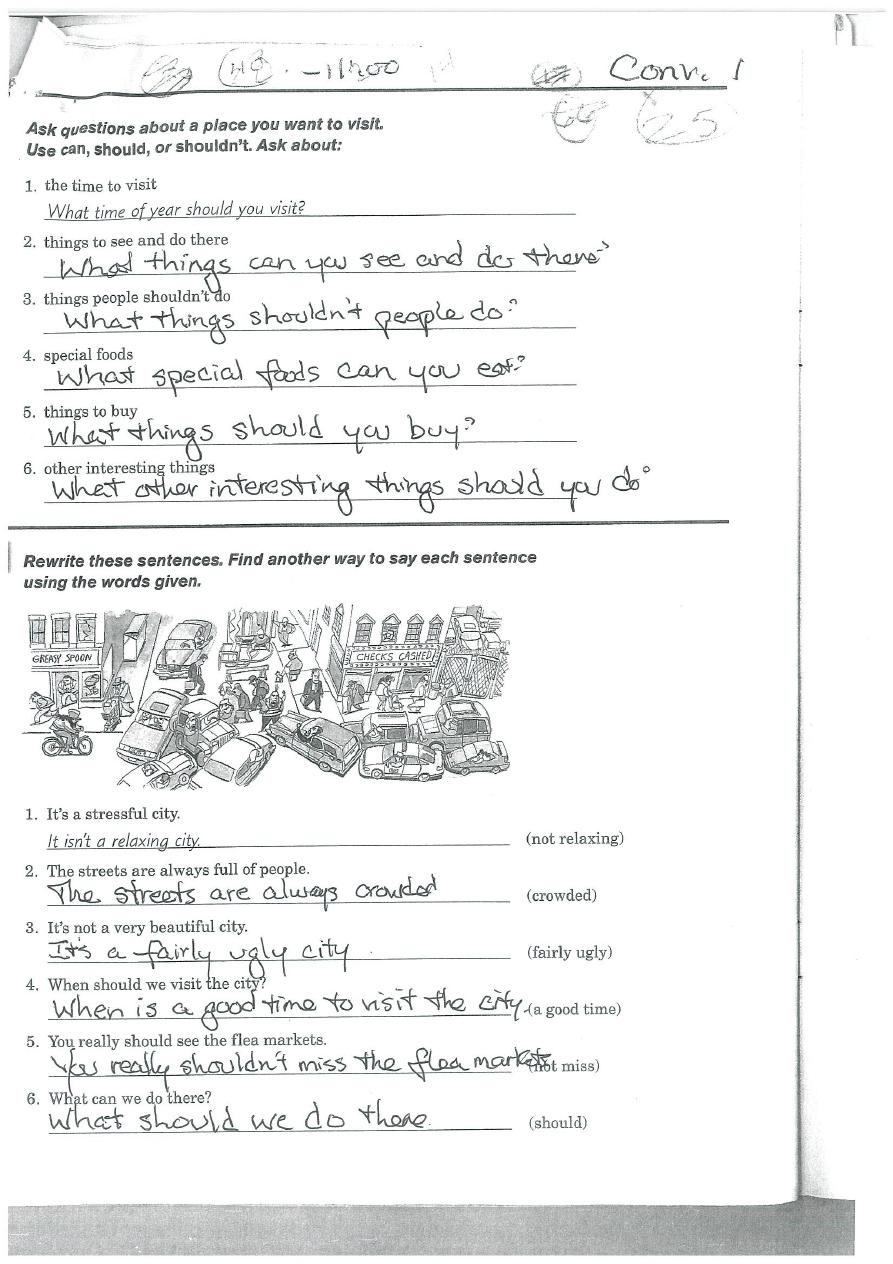 Conv. 1
25
Ask questions about a place you want to visit.
Use can, should, or shouldn't. Ask about:
1. the time to visit
What time of year should you visit?
2. things to see and do there
What things can you see and do there?
3. things people shouldn't do
What things shouldn't people do?
4. special foods
What special foods can you eat?
5. things to buy
What things should you buy?
6. other interesting things
What other interesting things should you do
Rewrite these sentences. Find another way to say each sentence
using the words given.
GREASY SPOON
CHECKS CASHED
1. It's a stressful city.
It isn't a relaxing city. (not relaxing)
2. The streets are always full of people.
The streets are always crowded (crowded)
3. It's not a very beautiful city.
It's a fairly ugly city. (fairly ugly)
4. When should we visit the city?
When is a good time to visit the city. (a good time)
5. You really should see the flea markets.
You really shouldn't miss the flea markets (not miss)
6. What can we do there?
What should we do there. (should)